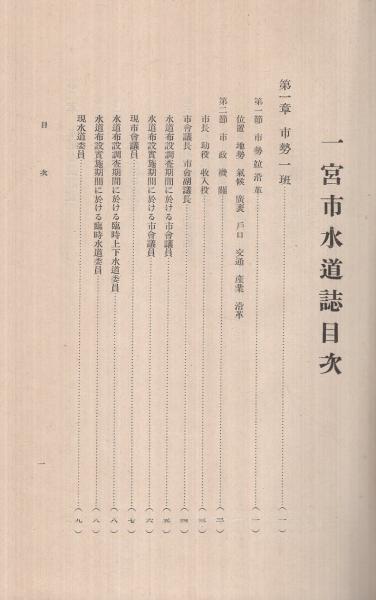 一宮市水道誌目次
第一章 市勢一班……(一)
第一節 市勢竝沿革……(一)
位置 地勢 氣候 廣袤 戶口 交通 產業 沿革
第二節 市政機關……(三)
市長 助役 收入役……(三)
市會議長 市會副議長……(四)
水道布設調査期間に於ける市會議員……(五)
水道布設實施期間に於ける市會議員……(六)
現市會議員……(七)
水道布設調査期間に於ける臨時上下水道委員……(八)
水道布設實施期間に於ける臨時水道委員……(八)
現水道委員……(九)
目次
一